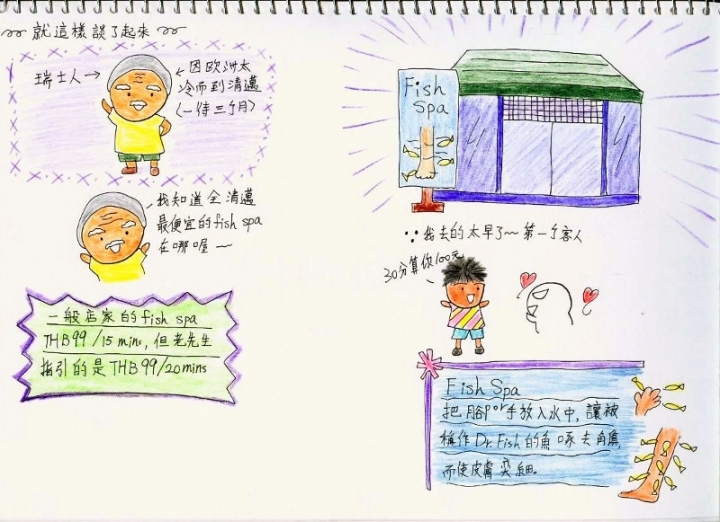 就這樣談了起來
瑞士人→
←因歐洲太
冷而到清邁
(一待三个月)
我知道全清邁
最便宜的fish spa
在哪喔~
一般店家的fish spa
THB99/15 mins, 但老先生
指引的是THB99/20mins
Fish
Spa
∵我去的太早了~第一个客人
30分算你100元
Fish Spa
把腳or手放入水中, 讓被
稱作Dr. Fish的魚啄去角質,
而使皮膚變細。